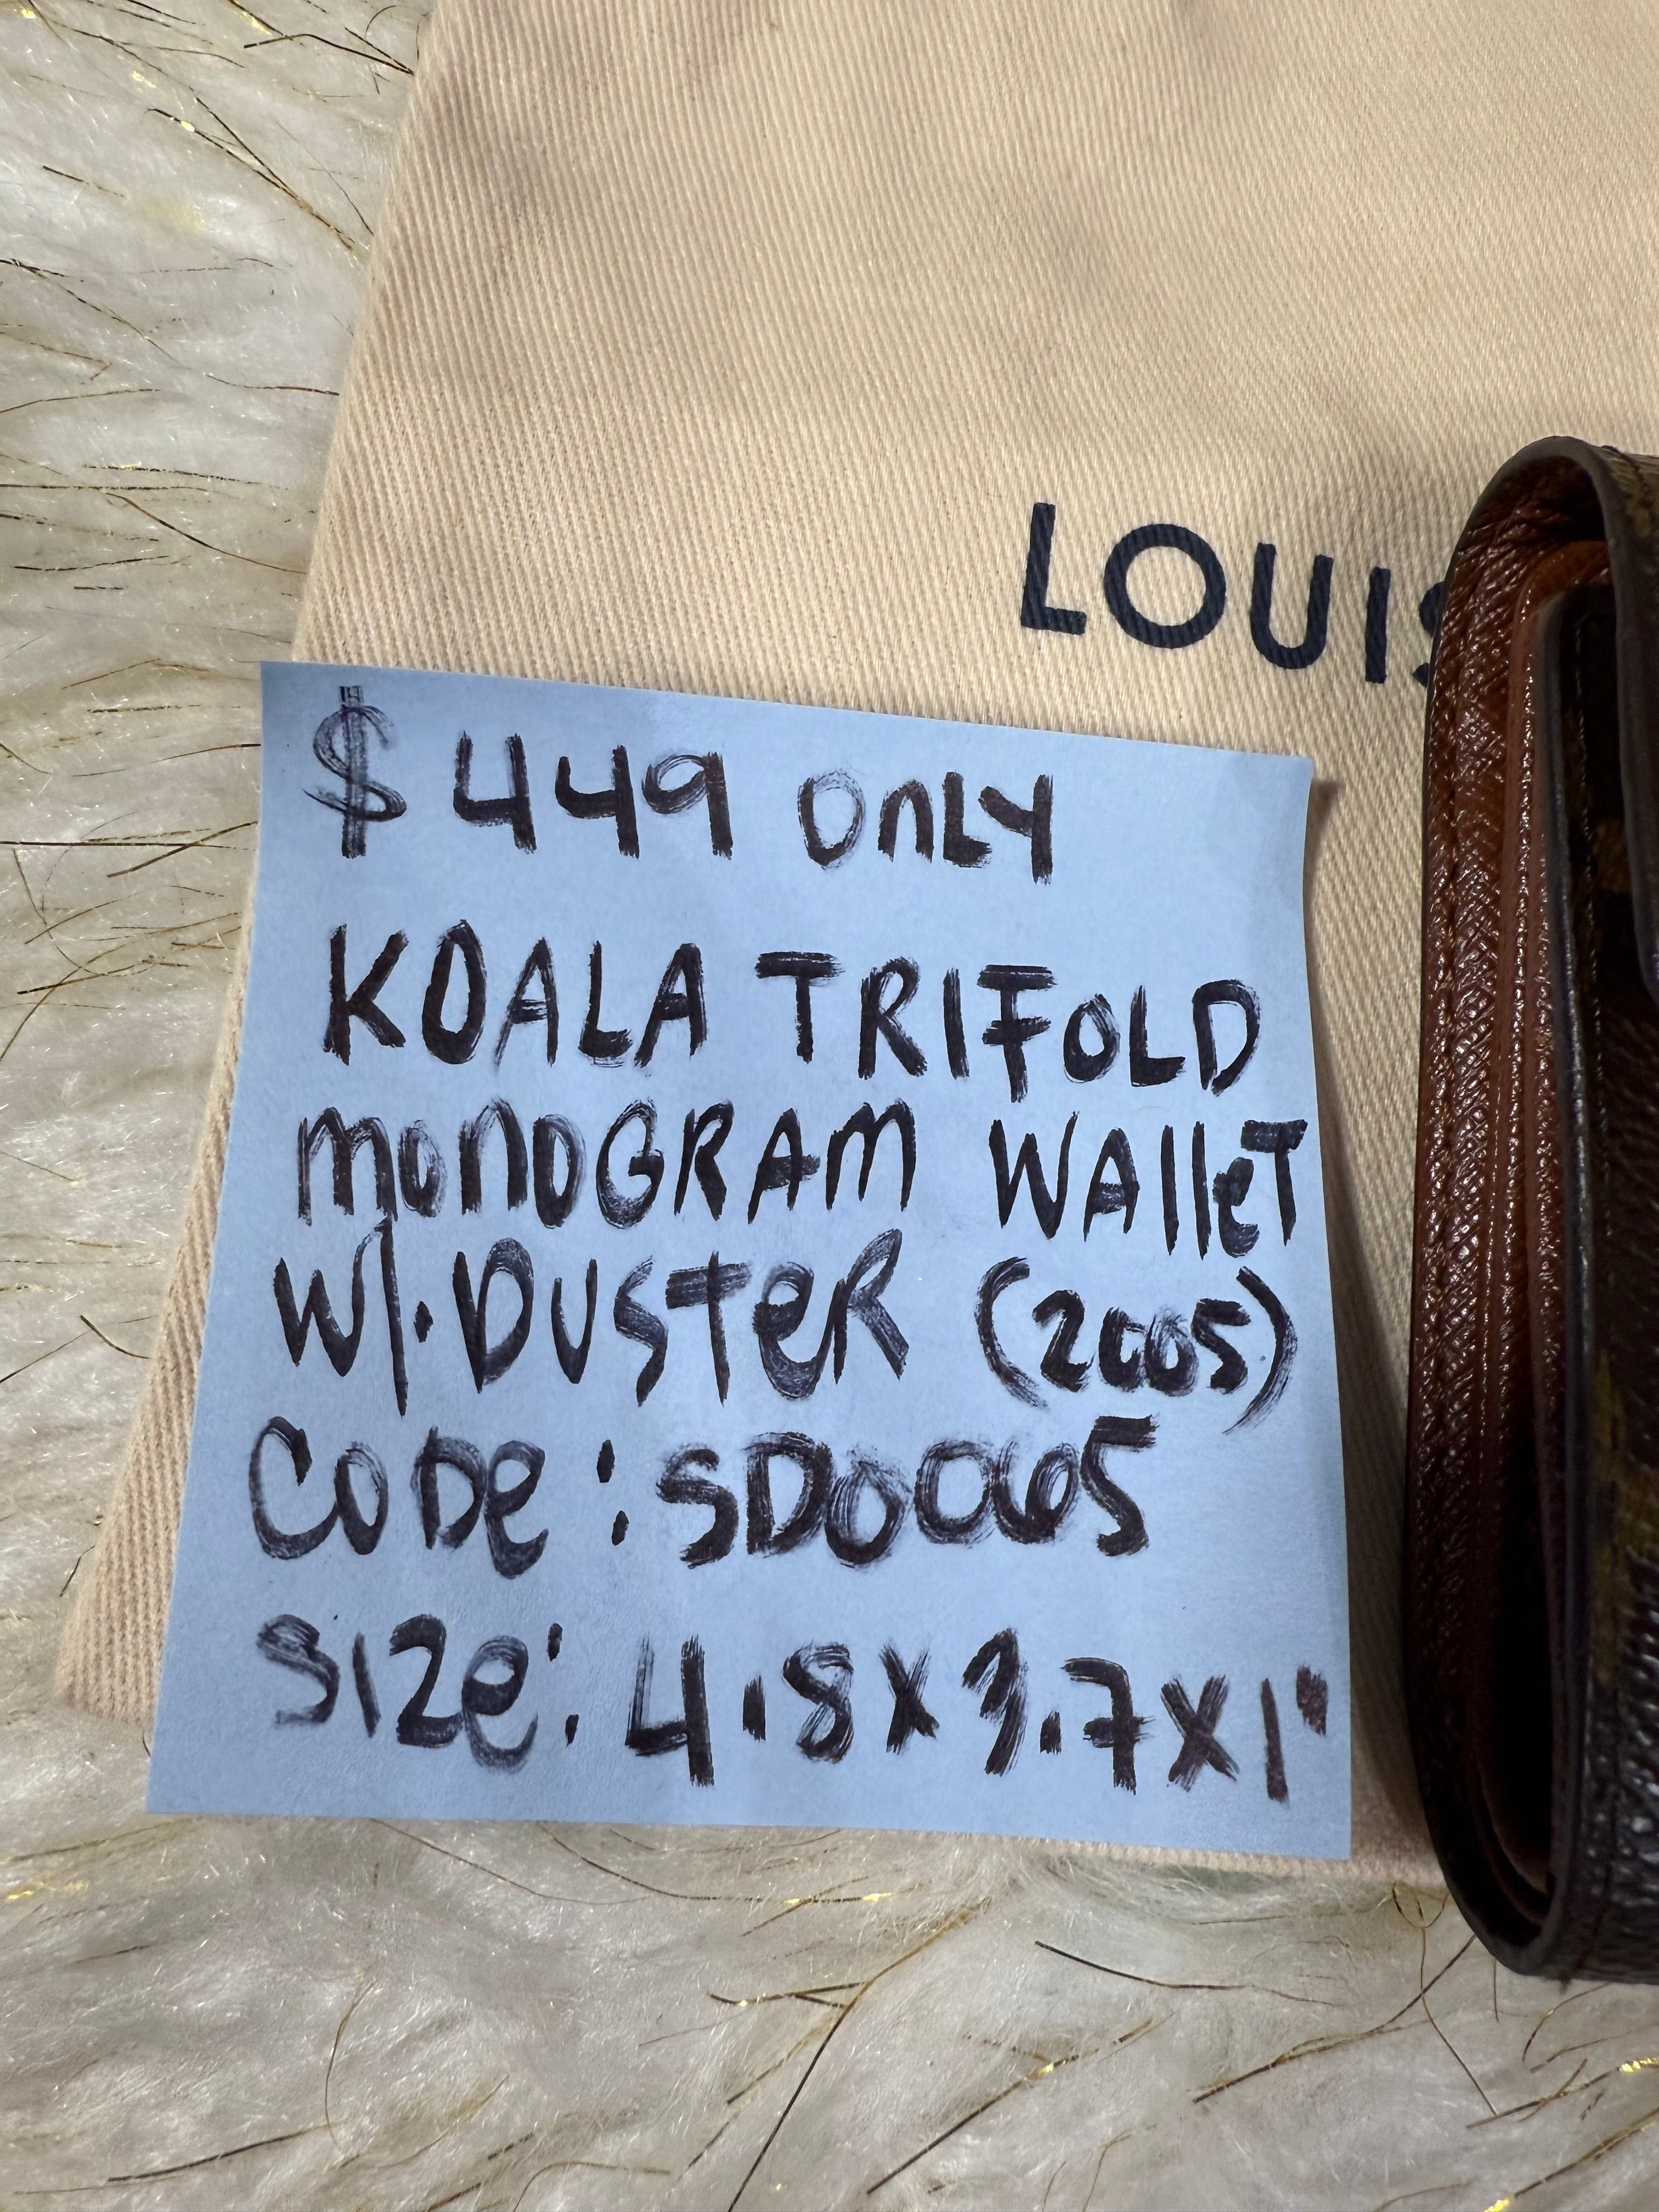 LOUIS
$449 only
KOALA TRIFOLD
monoGRAm WAlleT
w/. DUSTeR (2005)
CoDe : SD0065
SIZe: 4.8 x 3.7 x 1"